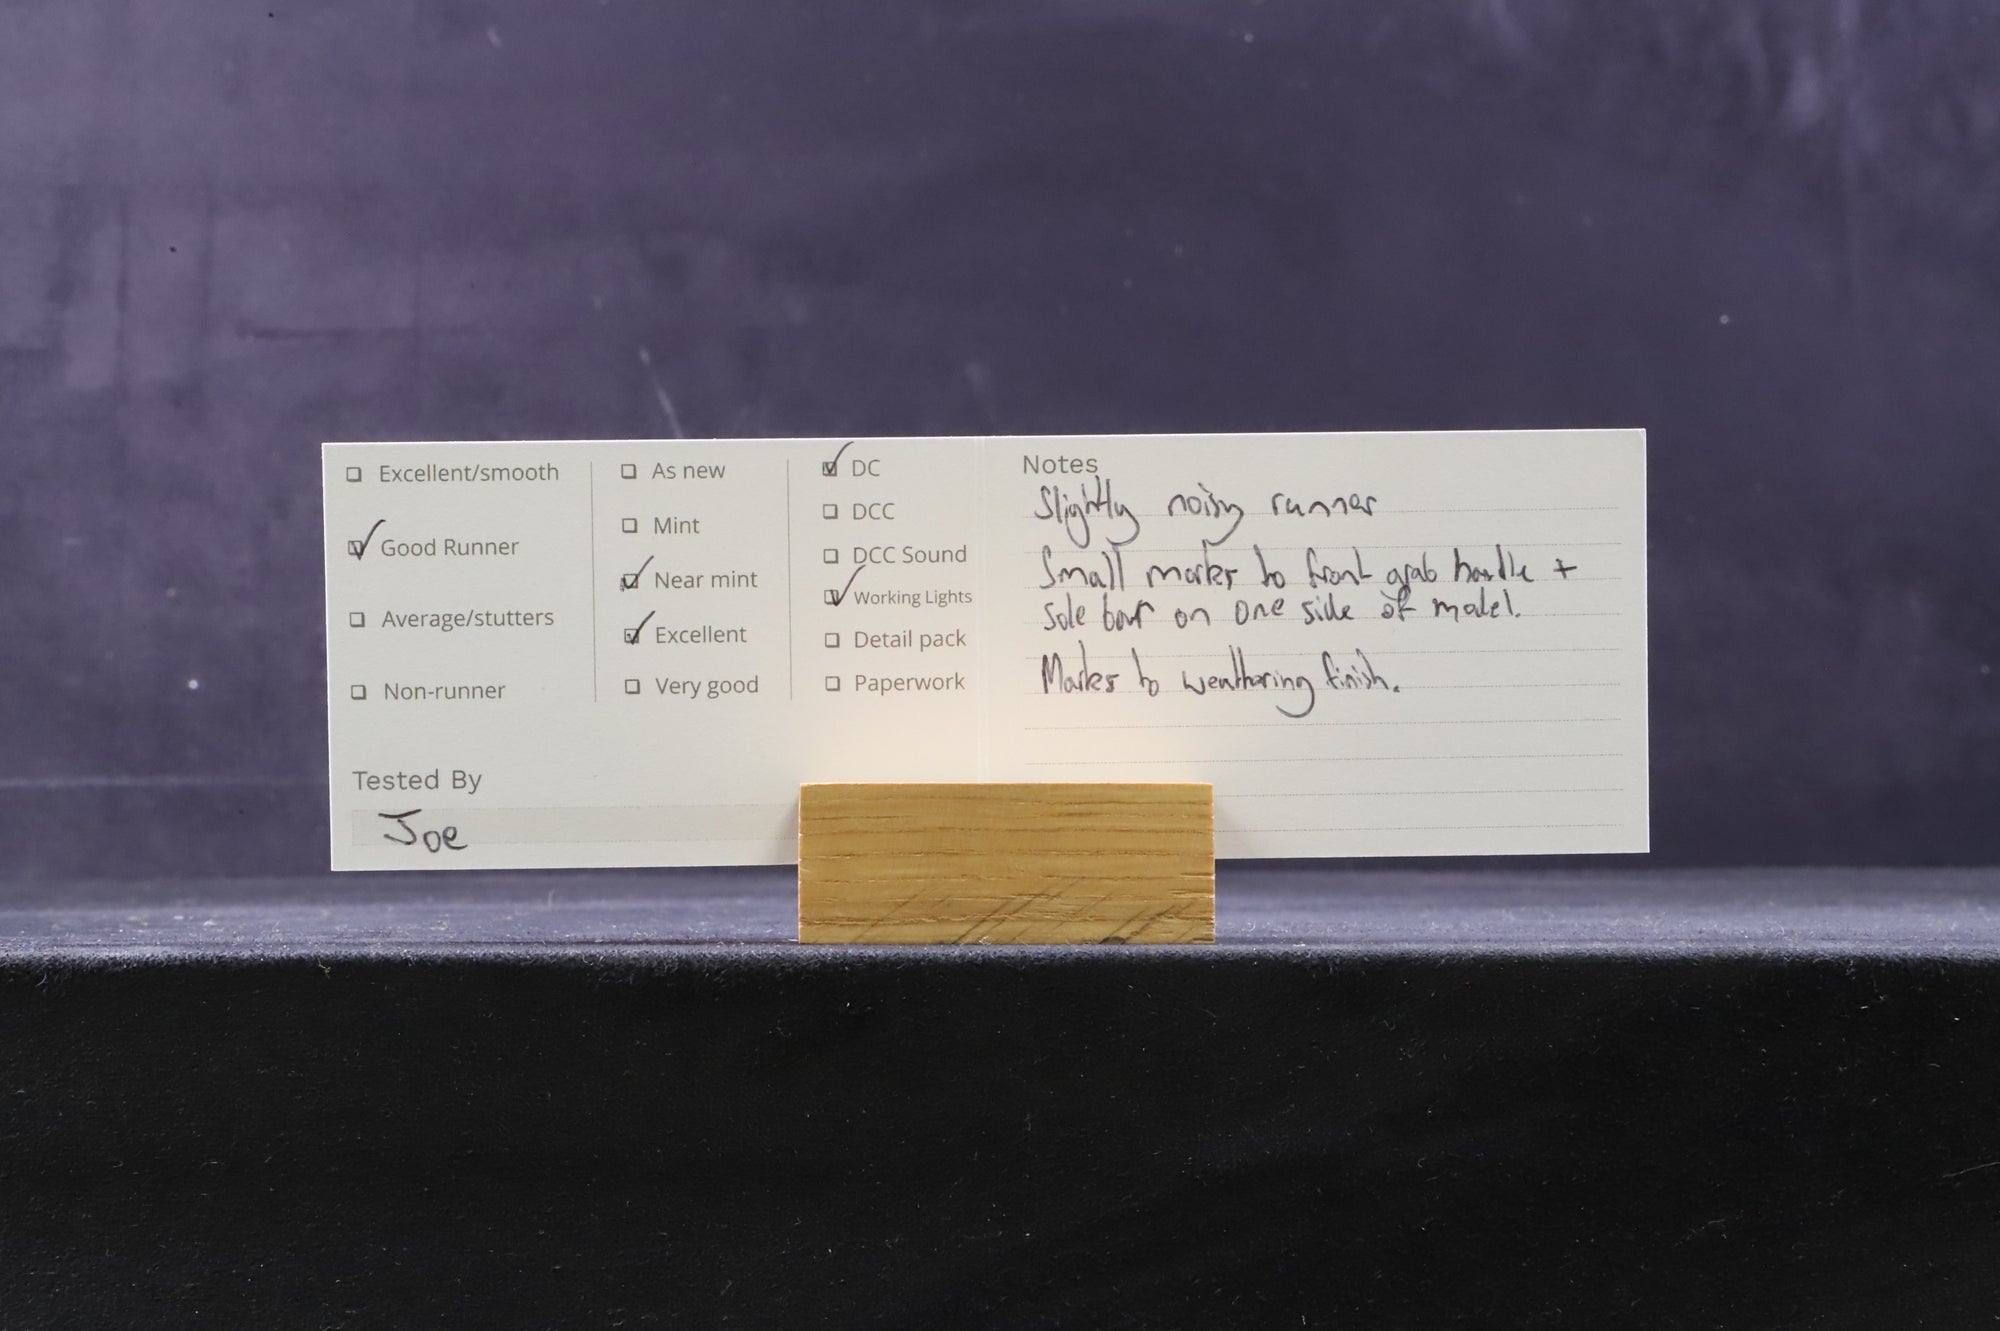 ☐ Excellent/smooth
☑ Good Runner
☐ Average/stutters
☐ Non-runner
☐ As new
☐ Mint
☑ Near mint
☑ Excellent
☐ Very good
☑ DC
☐ DCC
☐ DCC Sound
☑ Working Lights
☐ Detail pack
☐ Paperwork
Tested By
Joe
Notes
Slightly noisy runner
Small marks to front grab handle +
sole bar on one side of model.
Marks to weathering finish.